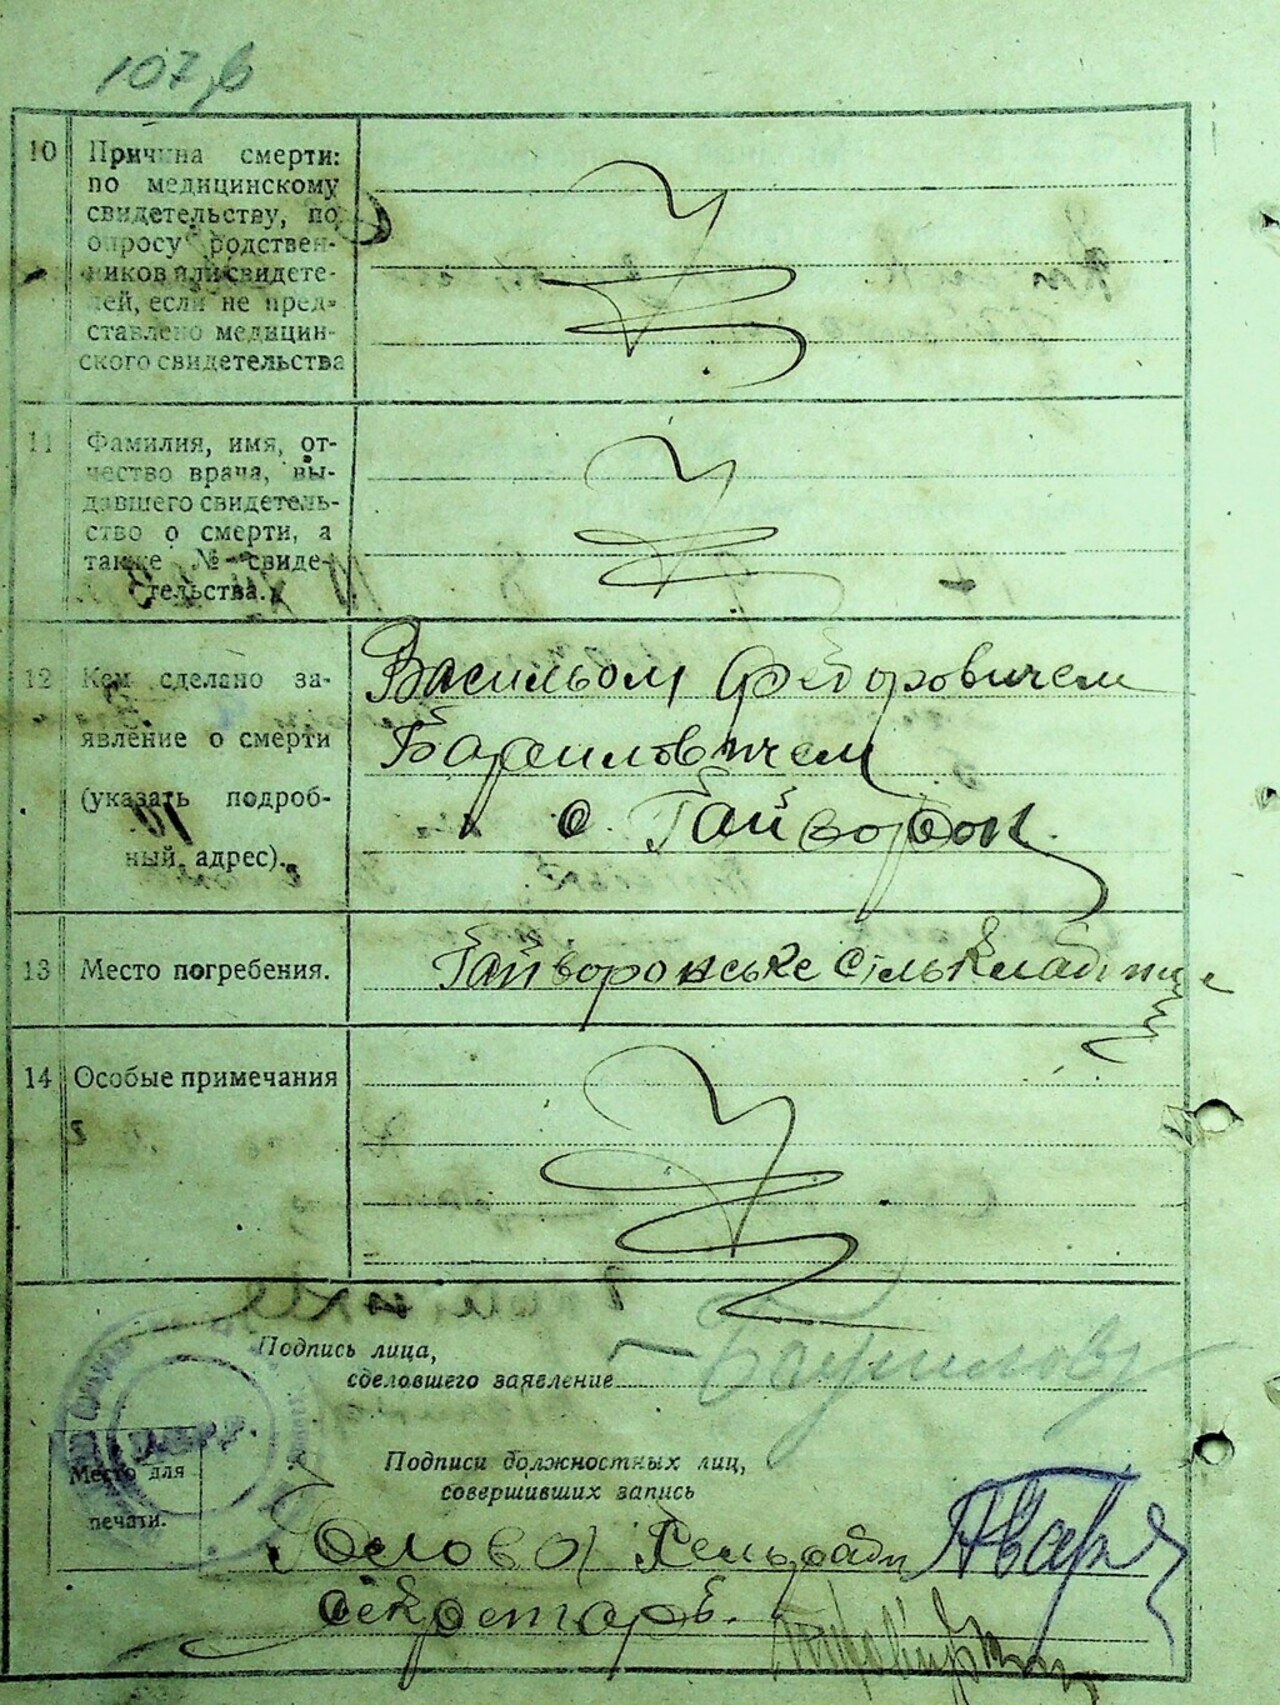 107
10
Причина смерти:
по медицинскому
свидетельству, по
опросу родствен-
ников или свидете-
лей, если не пред-
ставлено медицин-
ского свидетельства
11
Фамилия, имя, от-
чество врача, вы-
давшего свидетель-
ство о смерти, а
также № свиде-
тельства.
12
Кем сделано за-
явление о смерти
(указать подроб-
ный адрес).
Васильом Федоровичем
с. Гайворон.
13
Место погребения.
Гайворонське сількладбище
14
Особые примечания
Подпись лица,
сделавшего заявление
Место для
печати.
Подписи должностных лиц,
совершивших запись
Голова сельради
Секретарь.